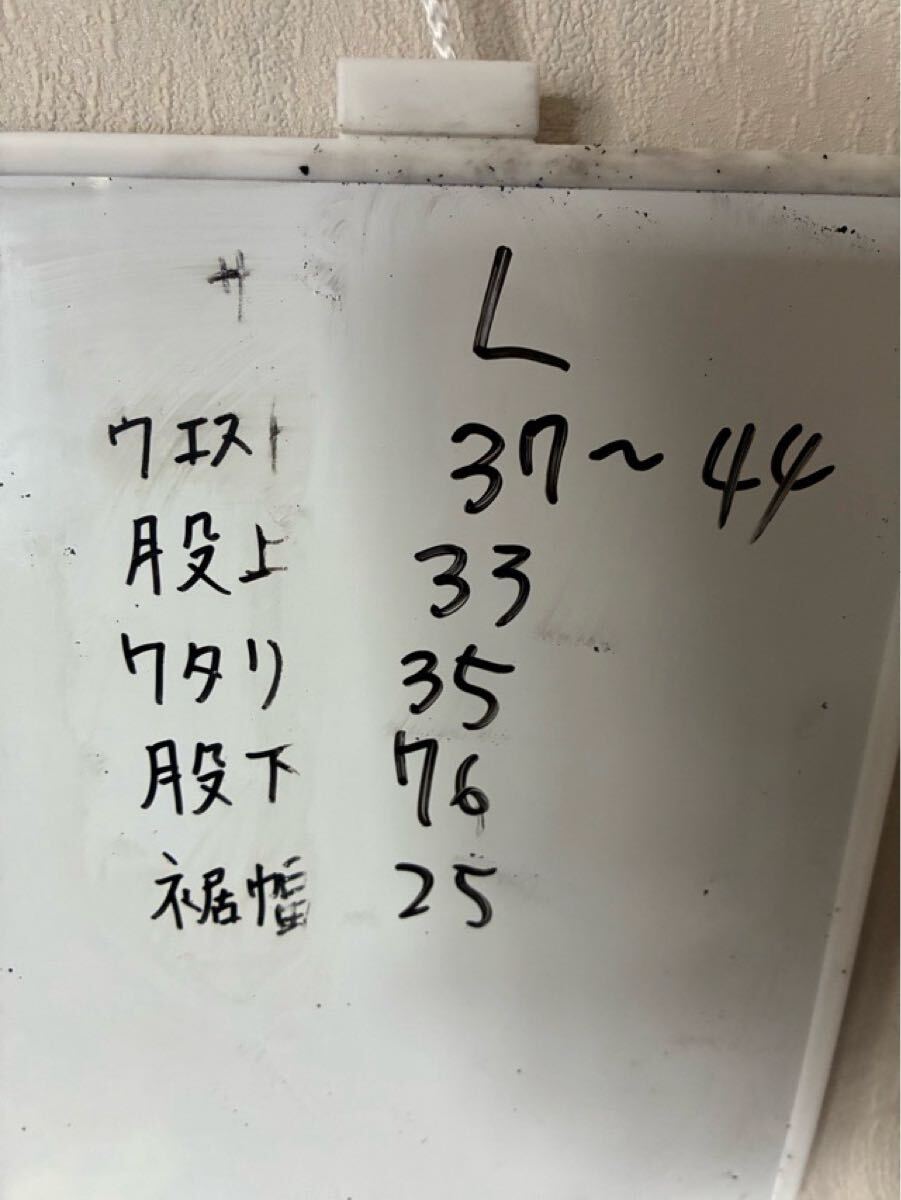 サ L
ウエスト 37~44
股上 33
ワタリ 35
股下 76
裾幅 25